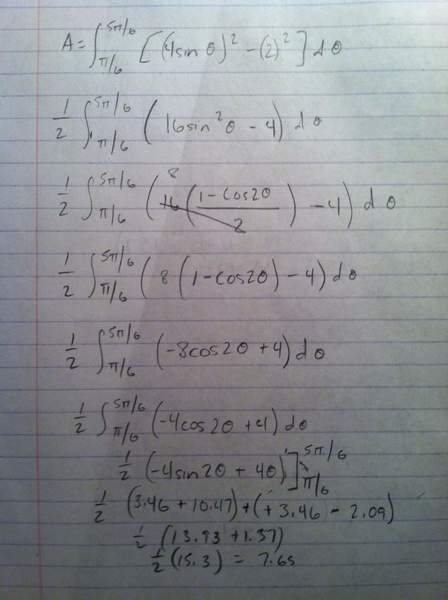 A = ∫_{π/6}^{5π/6} [(4sin θ)² - (2)²] dθ
1/2 ∫_{π/6}^{5π/6} (16sin²θ - 4) dθ
1/2 ∫_{π/6}^{5π/6} (16 8 (1-cos2θ / 2) - 4) dθ
1/2 ∫_{π/6}^{5π/6} (8(1-cos2θ) - 4) dθ
1/2 ∫_{π/6}^{5π/6} (-8cos2θ + 4) dθ
1/2 ∫_{π/6}^{5π/6} (-4cos2θ + 4) dθ
1/2 (-4sin2θ + 4θ)]_{π/6}^{5π/6}
1/2 (3.46 + 10.47) + (+3.46 - 2.09)
1/2 (13.93 + 1.37)
1/2 (15.3) = 7.65